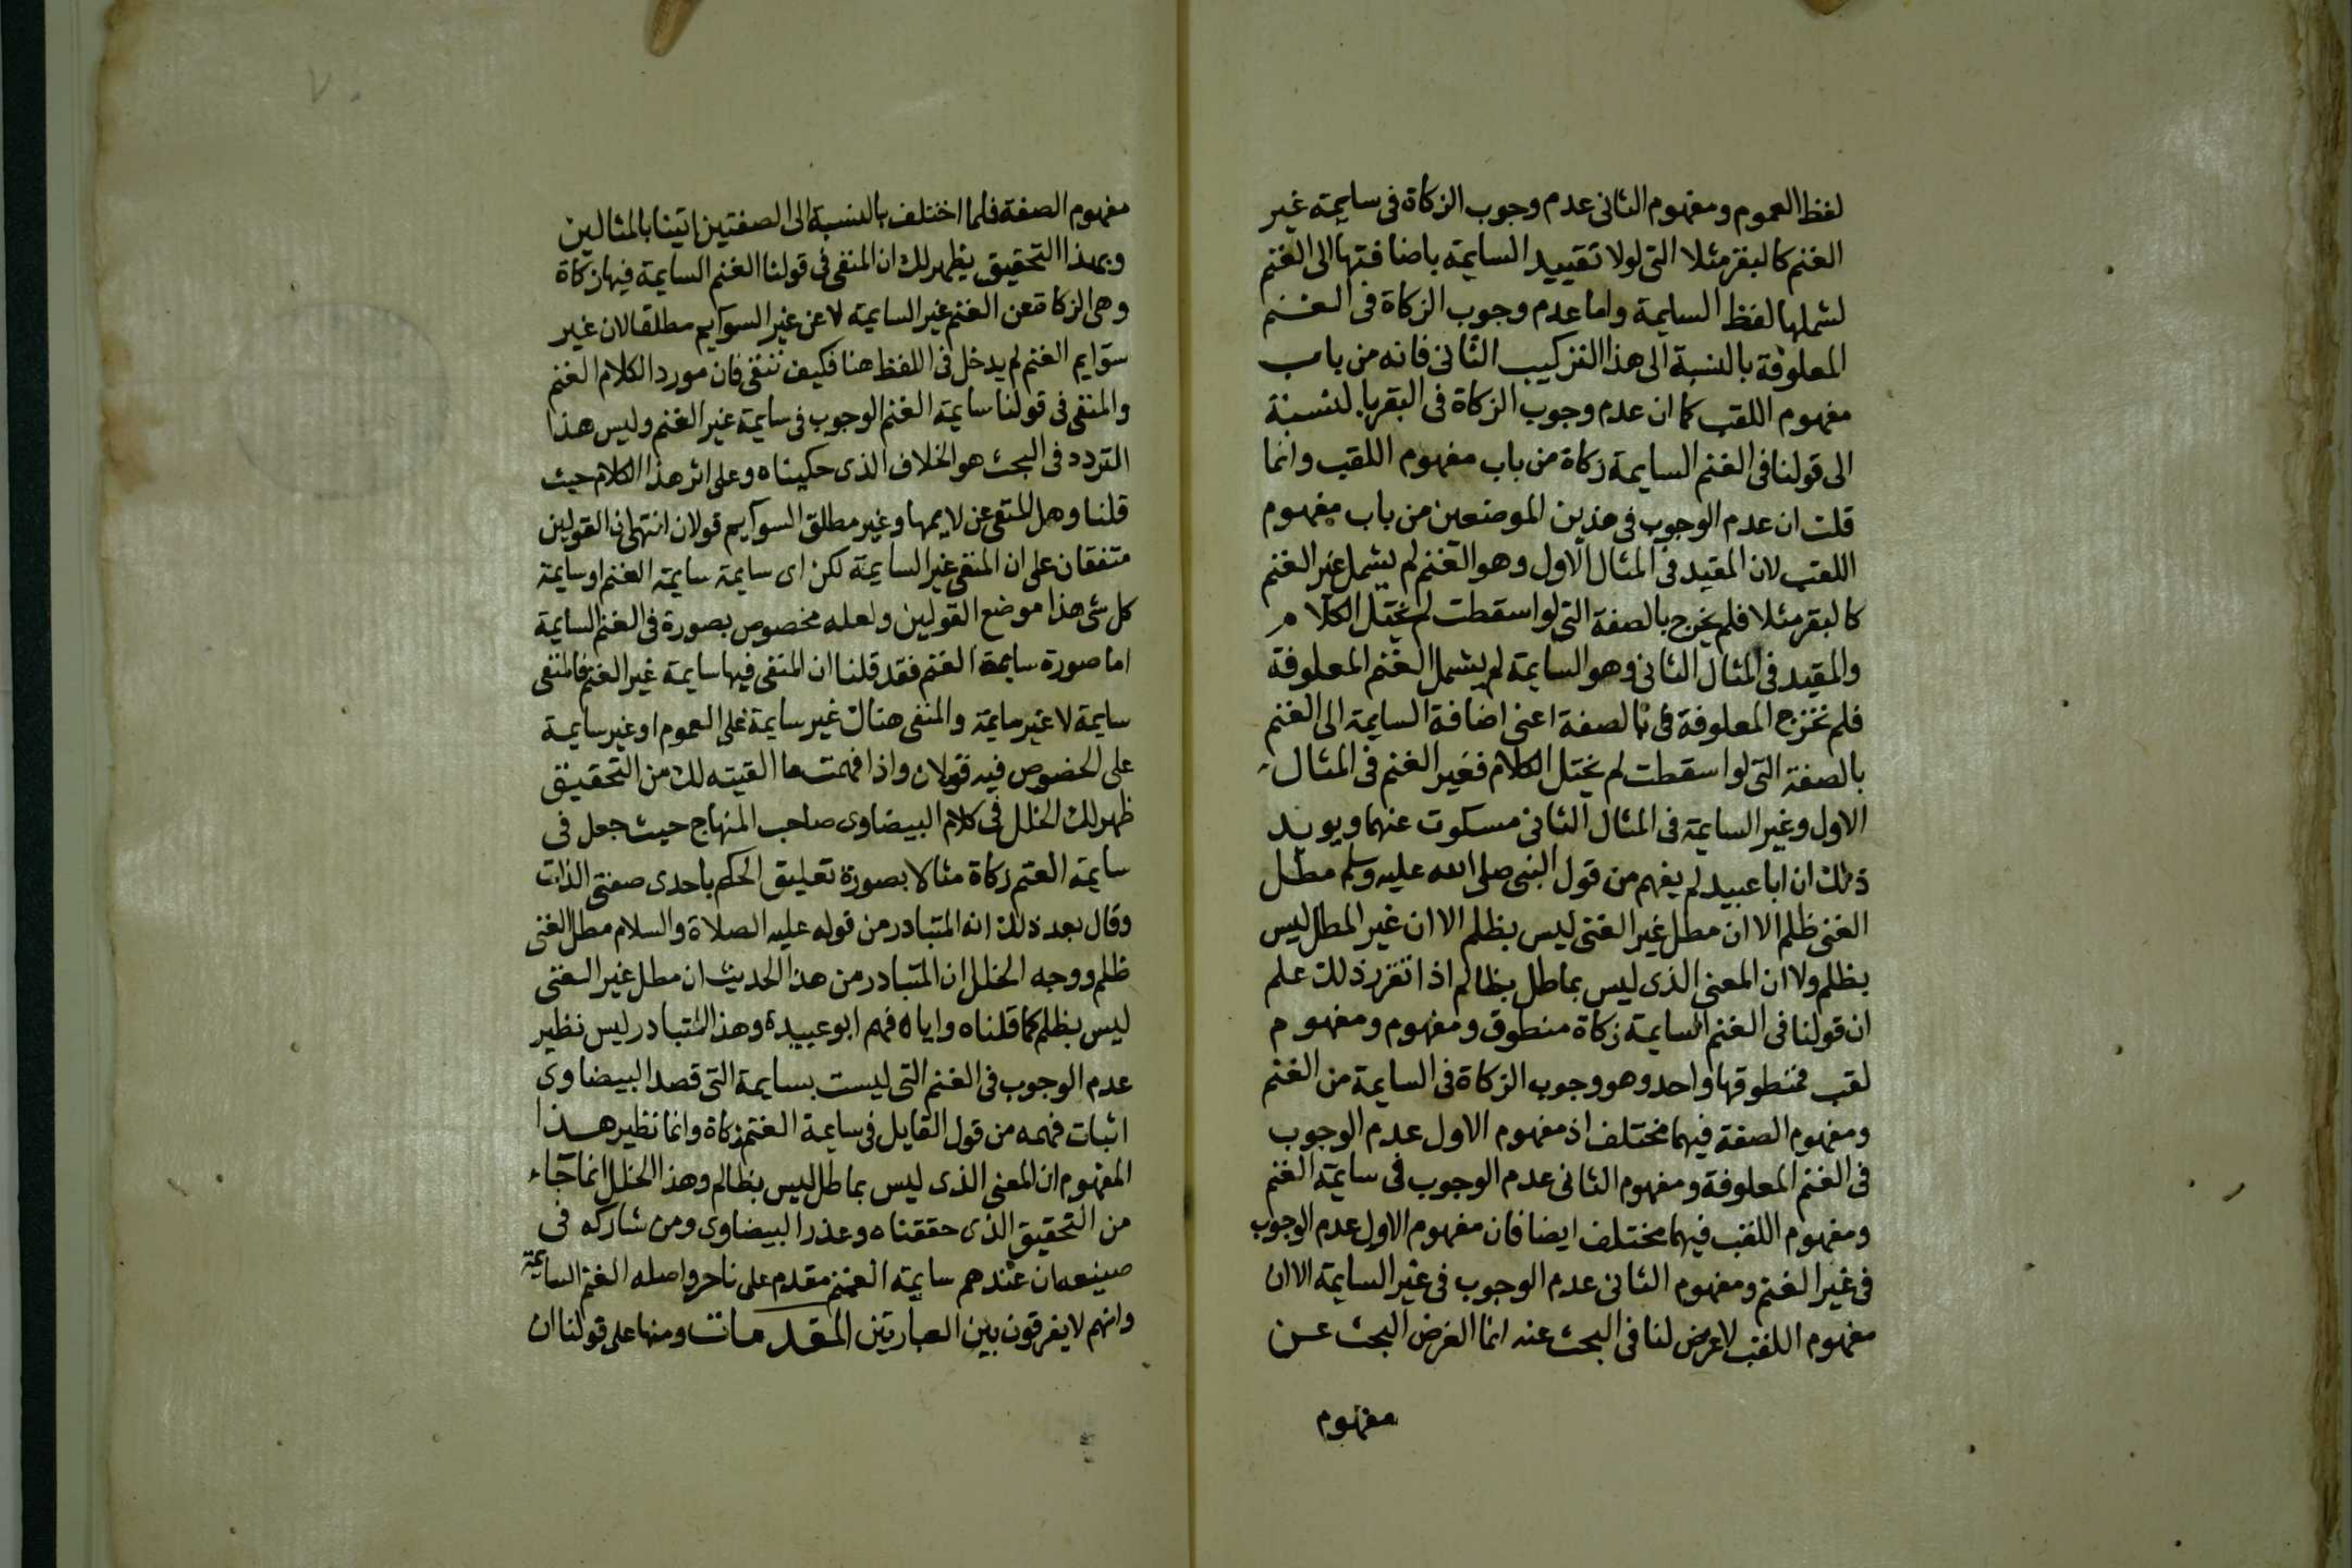 لفظ العموم ومفهوم الثانى عدم وجوب الزكاة فى سايمة غير
الغنم كالبقر مثلا التى لولا تقييد السايمة باضافتها الى الغنم
لشملها لفظ السايمة واما عدم وجوب الزكاة فى الغنم
المعلوفة بالنسبة الى هذا التركيب الثانى فانه من باب
مفهوم اللقب كما ان عدم وجوب الزكاة فى البقر بالنسبة
الى قولنا فى الغنم السايمة زكاة من باب مفهوم اللقب وانما
قلت ان عدم الوجوب فى هذين الموضعين من باب مفهوم
اللقب لان المقيد فى المثال الاول وهو الغنم لم يشمل غير الغنم
كالبقر مثلا فلم يخرج بالصفة التى لو اسقطت لم يختل الكلام
والمقيد فى المثال الثانى وهو السايمة لم يشمل الغنم المعلوفة
فلم تخرج المعلوفة فى بالصفة اعنى اضافة السايمة الى الغنم
بالصفة التى لو اسقطت لم يختل الكلام فغير الغنم فى المثال
الاول وغير السايمة فى المثال الثانى مسكوت عنهما ويويد
ذلك ان ابا عبيد لم يفهم من قول النبى صلى الله عليه وسلم مطل
الغنى ظلم الا ان مطل غير الغنى ليس بظلم الا ان غير المطل ليس
بظلم ولا ان المعنى الذى ليس بماطل بظالم اذا تقرر ذلك علم
ان قولنا فى الغنم السايمة زكاة منطوق ومفهوم ومفهوم
لقب فمنطوقها واحد وهو وجوب الزكاة فى السايمة من الغنم
ومفهوم الصفة فيهما مختلف اذ مفهوم الاول عدم الوجوب
فى الغنم المعلوفة ومفهوم الثانى عدم الوجوب فى سايمة الغنم
ومفهوم اللقب فيهما مختلف ايضا فان مفهوم الاول عدم الوجوب
فى غير الغنم ومفهوم الثانى عدم الوجوب فى غير السايمة الا ان
مفهوم اللقب لا غرض لنا فى البحث عنه انما الغرض البحث عن
مفهوم
مفهوم الصفة فلما اختلف بالنسبة الى الصفتين اتينا بالمثالين
وبهذا التحقيق يظهر لك ان المنفى فى قولنا الغنم السايمة فيها زكاة
وهى الزكاة عن الغنم غير السايمة لا عن غير السوايم مطلقا لان غير
سوايم الغنم لم يدخل فى اللفظ هنا فكيف تنتفى فان مورد الكلام الغنم
والمنفى فى قولنا سايمة الغنم الوجوب فى سايمة غير الغنم وليس هذا
التردد فى البحث هو الخلاف الذى حكيناه وعلى اثر هذا الكلام حيث
قلنا وهل المنفى عن لايمها وغير مطلق السوايم قولان انتهى فى القولين
متفقان على ان المنفى غير السايمة لكن اى سايمة سايمة الغنم او سايمة
كل شى هذا موضع القولين ولعله مخصوص بصورة فى الغنم السايمة
اما صورة سايمة الغنم فقد قلنا ان المنفى فيها سايمة غير الغنم فالمنفى
سايمة لا غير سايمة والمنفى هناك غير سايمة على العموم او غير سايمة
على الخصوص فيه قولان واذا فهمت ما القيته لك من التحقيق
ظهر لك الخلل فى كلام البيضاوى صاحب المنهاج حيث جعل فى
سايمة الغنم زكاة مثالا بصورة تعليق الحكم باحدى صفتى الذات
وقال بعد ذلك انه المتبادر من قوله عليه الصلاة والسلام مطل الغنى
ظلم ووجه الخلل ان المتبادر من هذا الحديث ان مطل غير الغنى
ليس بظلم كما قلناه واياه فهم ابو عبيدة وهذا المتبادر ليس نظير
عدم الوجوب فى الغنم التى ليست بسايمة التى قصد البيضاوى
اثبات فهمه من قول القايل فى سايمة الغنم زكاة وانما نظير هذا
المفهوم ان المعنى الذى ليس بماطل ليس بظالم وهذا الخلل انما جاء
من التحقيق الذى حققناه وعذر البيضاوى ومن شاركه فى
صنيعه ان عندهم سايمة الغنم مقدم على تاخر واصله الغنم السايمة
وانهم لا يفرقون بين العبارتين المقدمات ومنها على قولنا ان